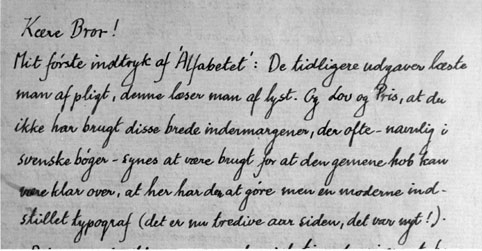 Kære Bror!
Mit første indtryk af 'Alfabetet': De tidligere udgaver læste
man af pligt, denne læser man af lyst. Og Lov og Pris, at du
ikke har brugt disse brede indermargener, der ofte – navnlig i
svenske bøger – synes at være brugt for at den gemene hob kan
være klar over, at her har de at gøre men en moderne ind-
stillet typograf (det er nu tredive aar siden, det var nyt!).